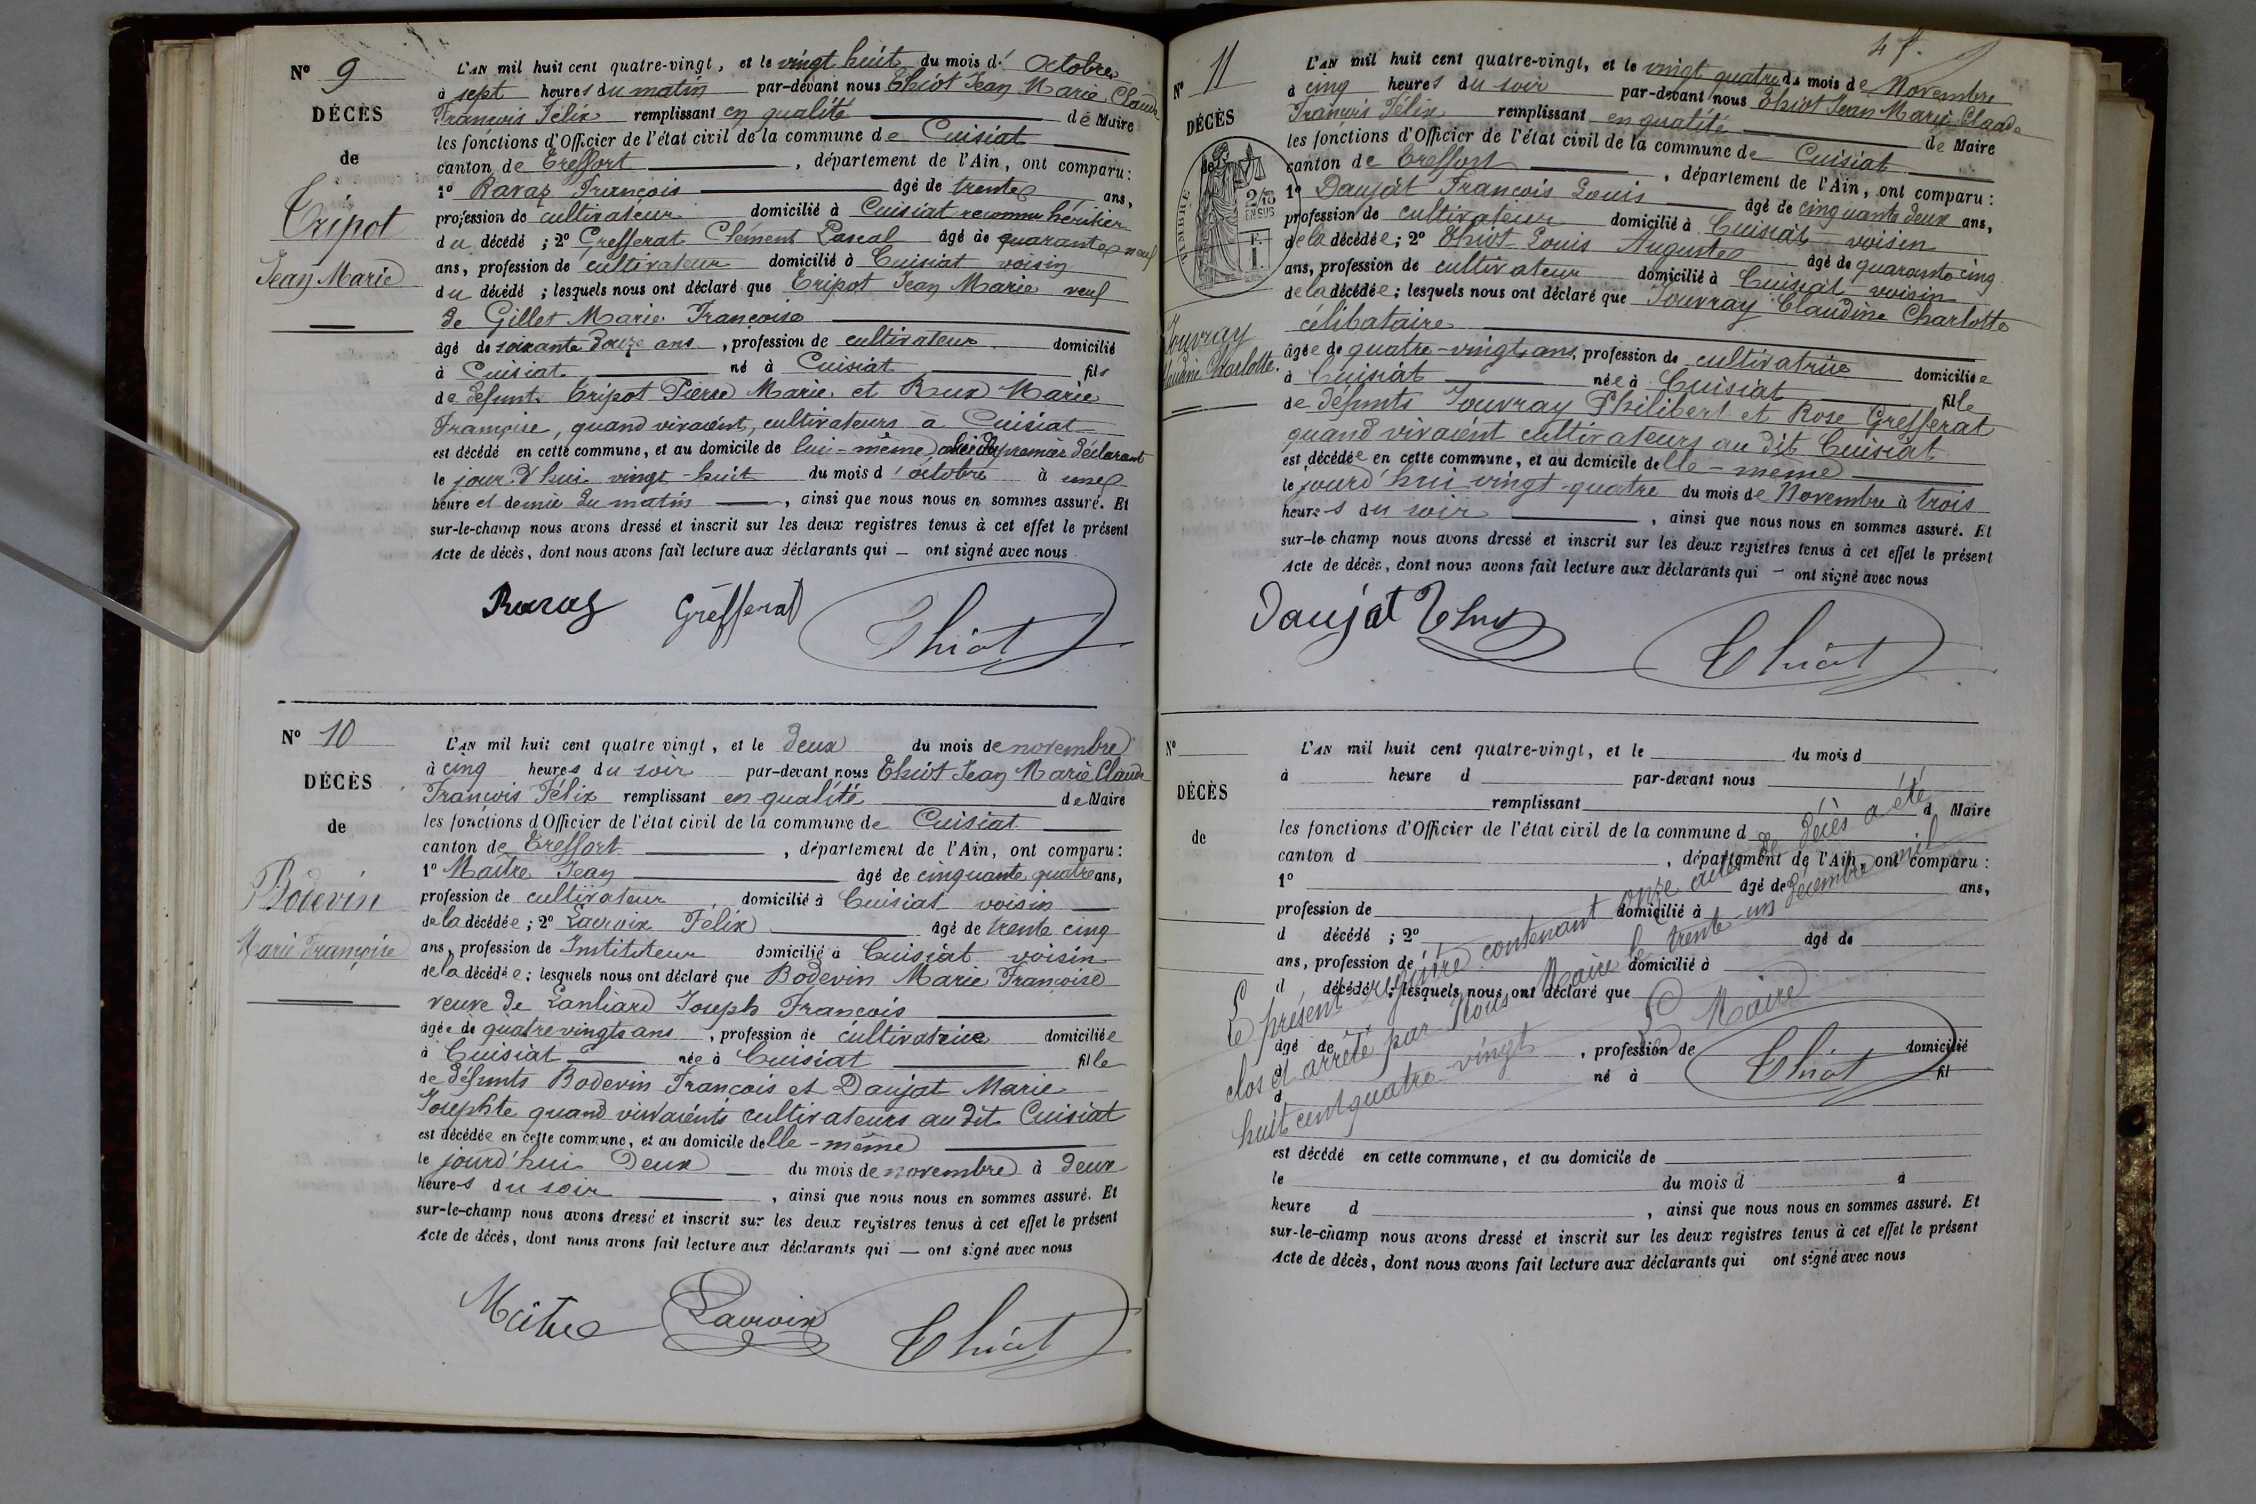 N° 9
DÉCÈS
de
Tripot
Jean Marie
L'AN mil huit cent quatre-vingt, et le vingt huit du mois d' Octobre
à sept heures du matin par-devant nous Thiot Jean Marie Claude
François Félix remplissant en qualité de Maire
les fonctions d'Officier de l'état civil de la commune de Cuisiat
canton de Treffort, département de l'Ain, ont comparu:
1° Ravaz François âgé de trente ans,
profession de cultivateur domicilié à Cuisiat reconnu héritier
du décédé; 2° Grefferat Clément Pascal âgé de quarante neuf
ans, profession de cultivateur domicilié à Cuisiat voisin
du décédé; lesquels nous ont déclaré que Tripot Jean Marie veuf
de Gillet Marie Françoise
âgé de soixante douze ans, profession de cultivateur domicilié
à Cuisiat né à Cuisiat fils
de défunts Tripot Pierre Marie et Rux Marie
Françoise, quand vivaient, cultivateurs à Cuisiat
est décédé en cette commune, et au domicile de lui-même, premier déclarant
le jour d'hui vingt-huit du mois d'octobre à une
heure et demie du matin, ainsi que nous nous en sommes assuré. Et
sur-le-champ nous avons dressé et inscrit sur les deux registres tenus à cet effet le présent
Acte de décès, dont nous avons fait lecture aux déclarants qui — ont signé avec nous
Ravaz Grefferat Thiot
N° 10
DÉCÈS
de
Bodevin
Marie Françoise
L'AN mil huit cent quatre vingt, et le deux du mois de novembre
à cinq heures du soir par-devant nous Thiot Jean Marie Claude
François Félix remplissant en qualité de Maire
les fonctions d'Officier de l'état civil de la commune de Cuisiat
canton de Treffort, département de l'Ain, ont comparu:
1° Maître Jean âgé de cinquante quatre ans,
profession de cultivateur domicilié à Cuisiat voisin
de la décédée; 2° Lacroix Félix âgé de trente cinq
ans, profession de Instituteur domicilié à Cuisiat voisin
de la décédée; lesquels nous ont déclaré que Bodevin Marie Françoise
veuve de Lanliard Joseph François
âgée de quatre vingts ans, profession de cultivatrice domiciliée
à Cuisiat née à Cuisiat fille
de défunts Bodevin François et Daujat Marie
Josephte quand vivaients cultivateurs au dit Cuisiat
est décédée en cette commune, et au domicile delle-même
le jourd'hui Deux du mois de novembre à deux
heures du soir, ainsi que nous nous en sommes assuré. Et
sur-le-champ nous avons dressé et inscrit sur les deux registres tenus à cet effet le présent
Acte de décès, dont nous avons fait lecture aux déclarants qui — ont signé avec nous
Maître Lacroix Thiot
N° 11
DÉCÈS
de
TIMBRE
2/10
EN SUS
F.
1
Jouvray
Claudine Charlotte.
L'AN mil huit cent quatre-vingt, et le vingt quatre du mois de Novembre
à cinq heures du soir par-devant nous Thiot Jean Marie Claude
François Félix remplissant en qualité de Maire
les fonctions d'Officier de l'état civil de la commune de Cuisiat
canton de Treffort, département de l'Ain, ont comparu:
1° Daujat François Louis âgé de cinquante deux ans,
profession de cultivateur domicilié à Cuisiat voisin
de la décédée; 2° Thiot Louis Auguste âgé de quarante cinq
ans, profession de cultivateur domicilié à Cuisiat voisin
de la décédée; lesquels nous ont déclaré que Jouvray Claudine Charlotte
célibataire
âgée de quatre-vingts ans, profession de cultivatrice domiciliée
à Cuisiat née à Cuisiat fille
de défunts Jouvray Philibert et Rose Grefferat
quand vivaient cultivateurs au dit Cuisiat
est décédée en cette commune, et au domicile delle-même
le jourd'hui vingt-quatre du mois de Novembre à trois
heures du soir, ainsi que nous nous en sommes assuré. Et
sur-le-champ nous avons dressé et inscrit sur les deux registres tenus à cet effet le présent
Acte de décès, dont nous avons fait lecture aux déclarants qui — ont signé avec nous
Daujat Thiot Thiot
N°
DÉCÈS
de
L'AN mil huit cent quatre-vingt, et le du mois d
à heure d par-devant nous
remplissant d Maire
les fonctions d'Officier de l'état civil de la commune d
canton d , département de l'Ain, ont comparu:
1° âgé de ans,
profession de domicilié à
d décédé; 2° âgé de
ans, profession de domicilié à
d décédé; lesquels nous ont déclaré que
âgé de , profession de domicilié
à né à fil
d
est décédé en cette commune, et au domicile de
le du mois d à
heure d , ainsi que nous nous en sommes assuré. Et
sur-le-champ nous avons dressé et inscrit sur les deux registres tenus à cet effet le présent
Acte de décès, dont nous avons fait lecture aux déclarants qui ont signé avec nous
Le présent registre contenant onze actes de décès a été
clos et arrêté par Nous Maire le trente-un décembre mil
huit cent quatre-vingt
Le Maire
Thiot